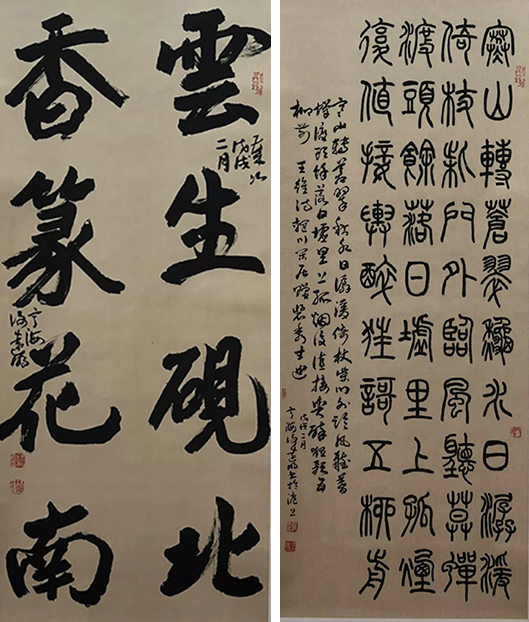 雲生硯北
戊戌
二月
香篆花南
寧海
寒山轉蒼翠秋水日潺湲
倚杖柴門外臨風聽暮蟬
渡頭餘落日墟里上孤煙
復值接輿醉狂謌五柳前
寒山轉蒼翠秋水日潺湲倚杖柴門外臨風聽暮
蟬渡頭餘落日墟里上孤煙復值接輿醉狂歌五
柳前 王維詩輞川閒居贈裴秀才迪
戊戌二月
寧海於滬上